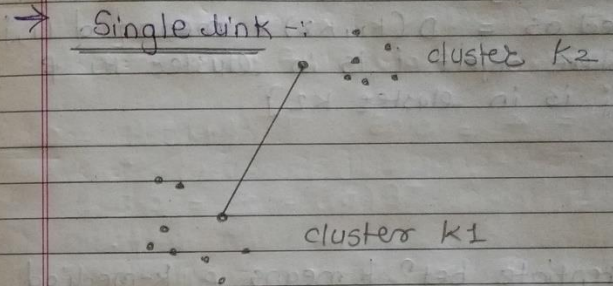 → Single link -:
cluster K2
cluster K1